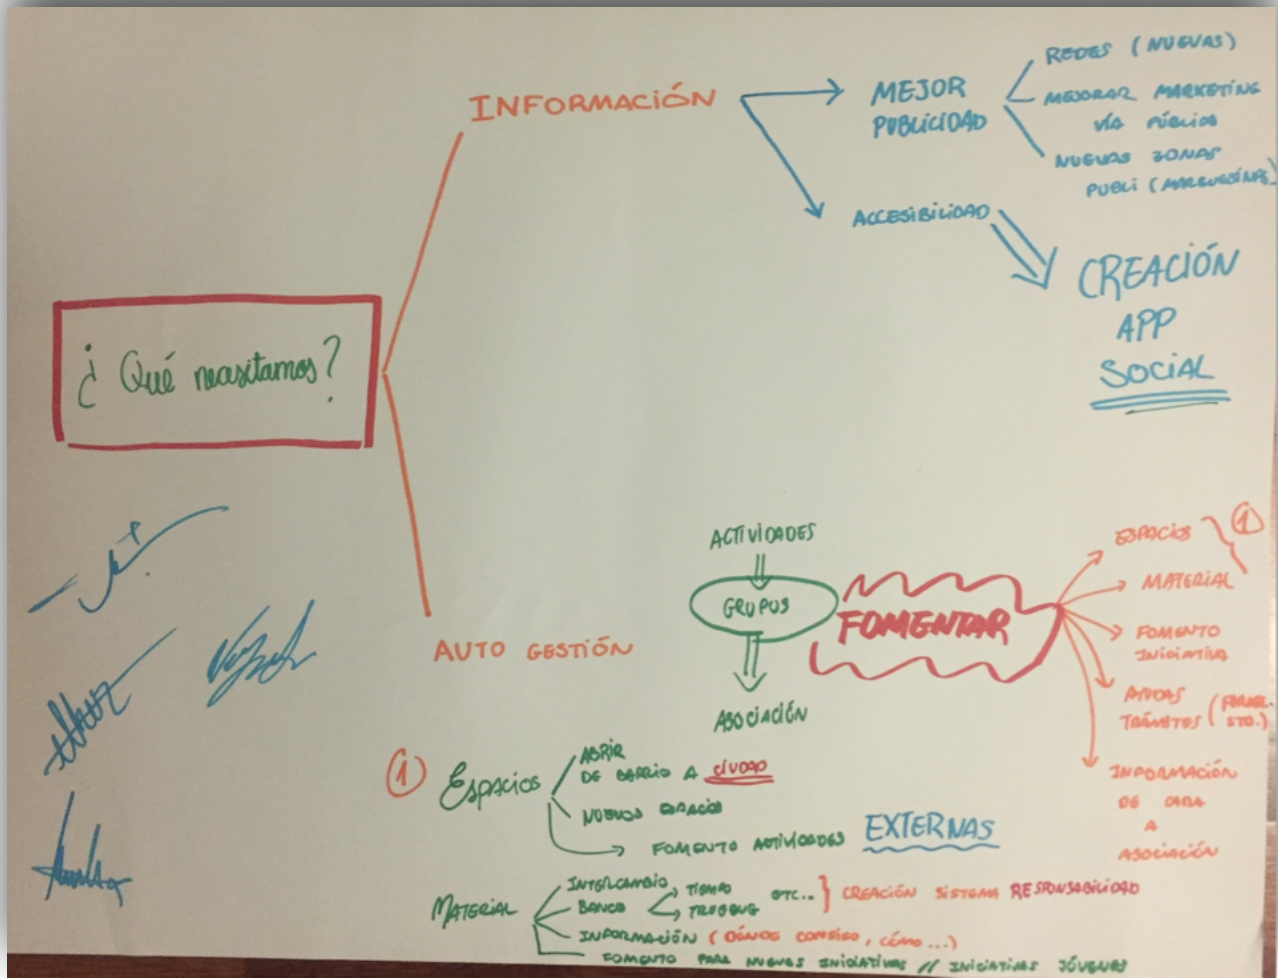 ¿Qué necesitamos?
INFORMACIÓN
MEJOR
PUBLICIDAD
REDES (NUEVAS)
MEJORAR MARKETING
VÍA PÚBLICA
NUEVAS ZONAS
PUBLI (MARQUESINAS)
ACCESIBILIDAD
CREACIÓN
APP
SOCIAL
AUTO GESTIÓN
ACTIVIDADES
GRUPOS
ASOCIACIÓN
FOMENTAR
ESPACIOS
1
MATERIAL
FOMENTO
INICIATIVA
AYUDAS
TRÁMITES
INFORMACIÓN
DE CARA
A
ASOCIACIÓN
1 ESPACIOS
ABRIR
DE BARRIO A CIUDAD
NUEVOS ESPACIOS
FOMENTO ACTIVIDADES EXTERNAS
MATERIAL
INTERCAMBIO
BANCO
TIEMPO ETC...
TRUEQUE
CREACIÓN SISTEMA RESPONSABILIDAD
INFORMACIÓN (DÓNDE CONSIGO, CÓMO...)
FOMENTO PARA NUEVAS INICIATIVAS // INICIATIVAS JÓVENES